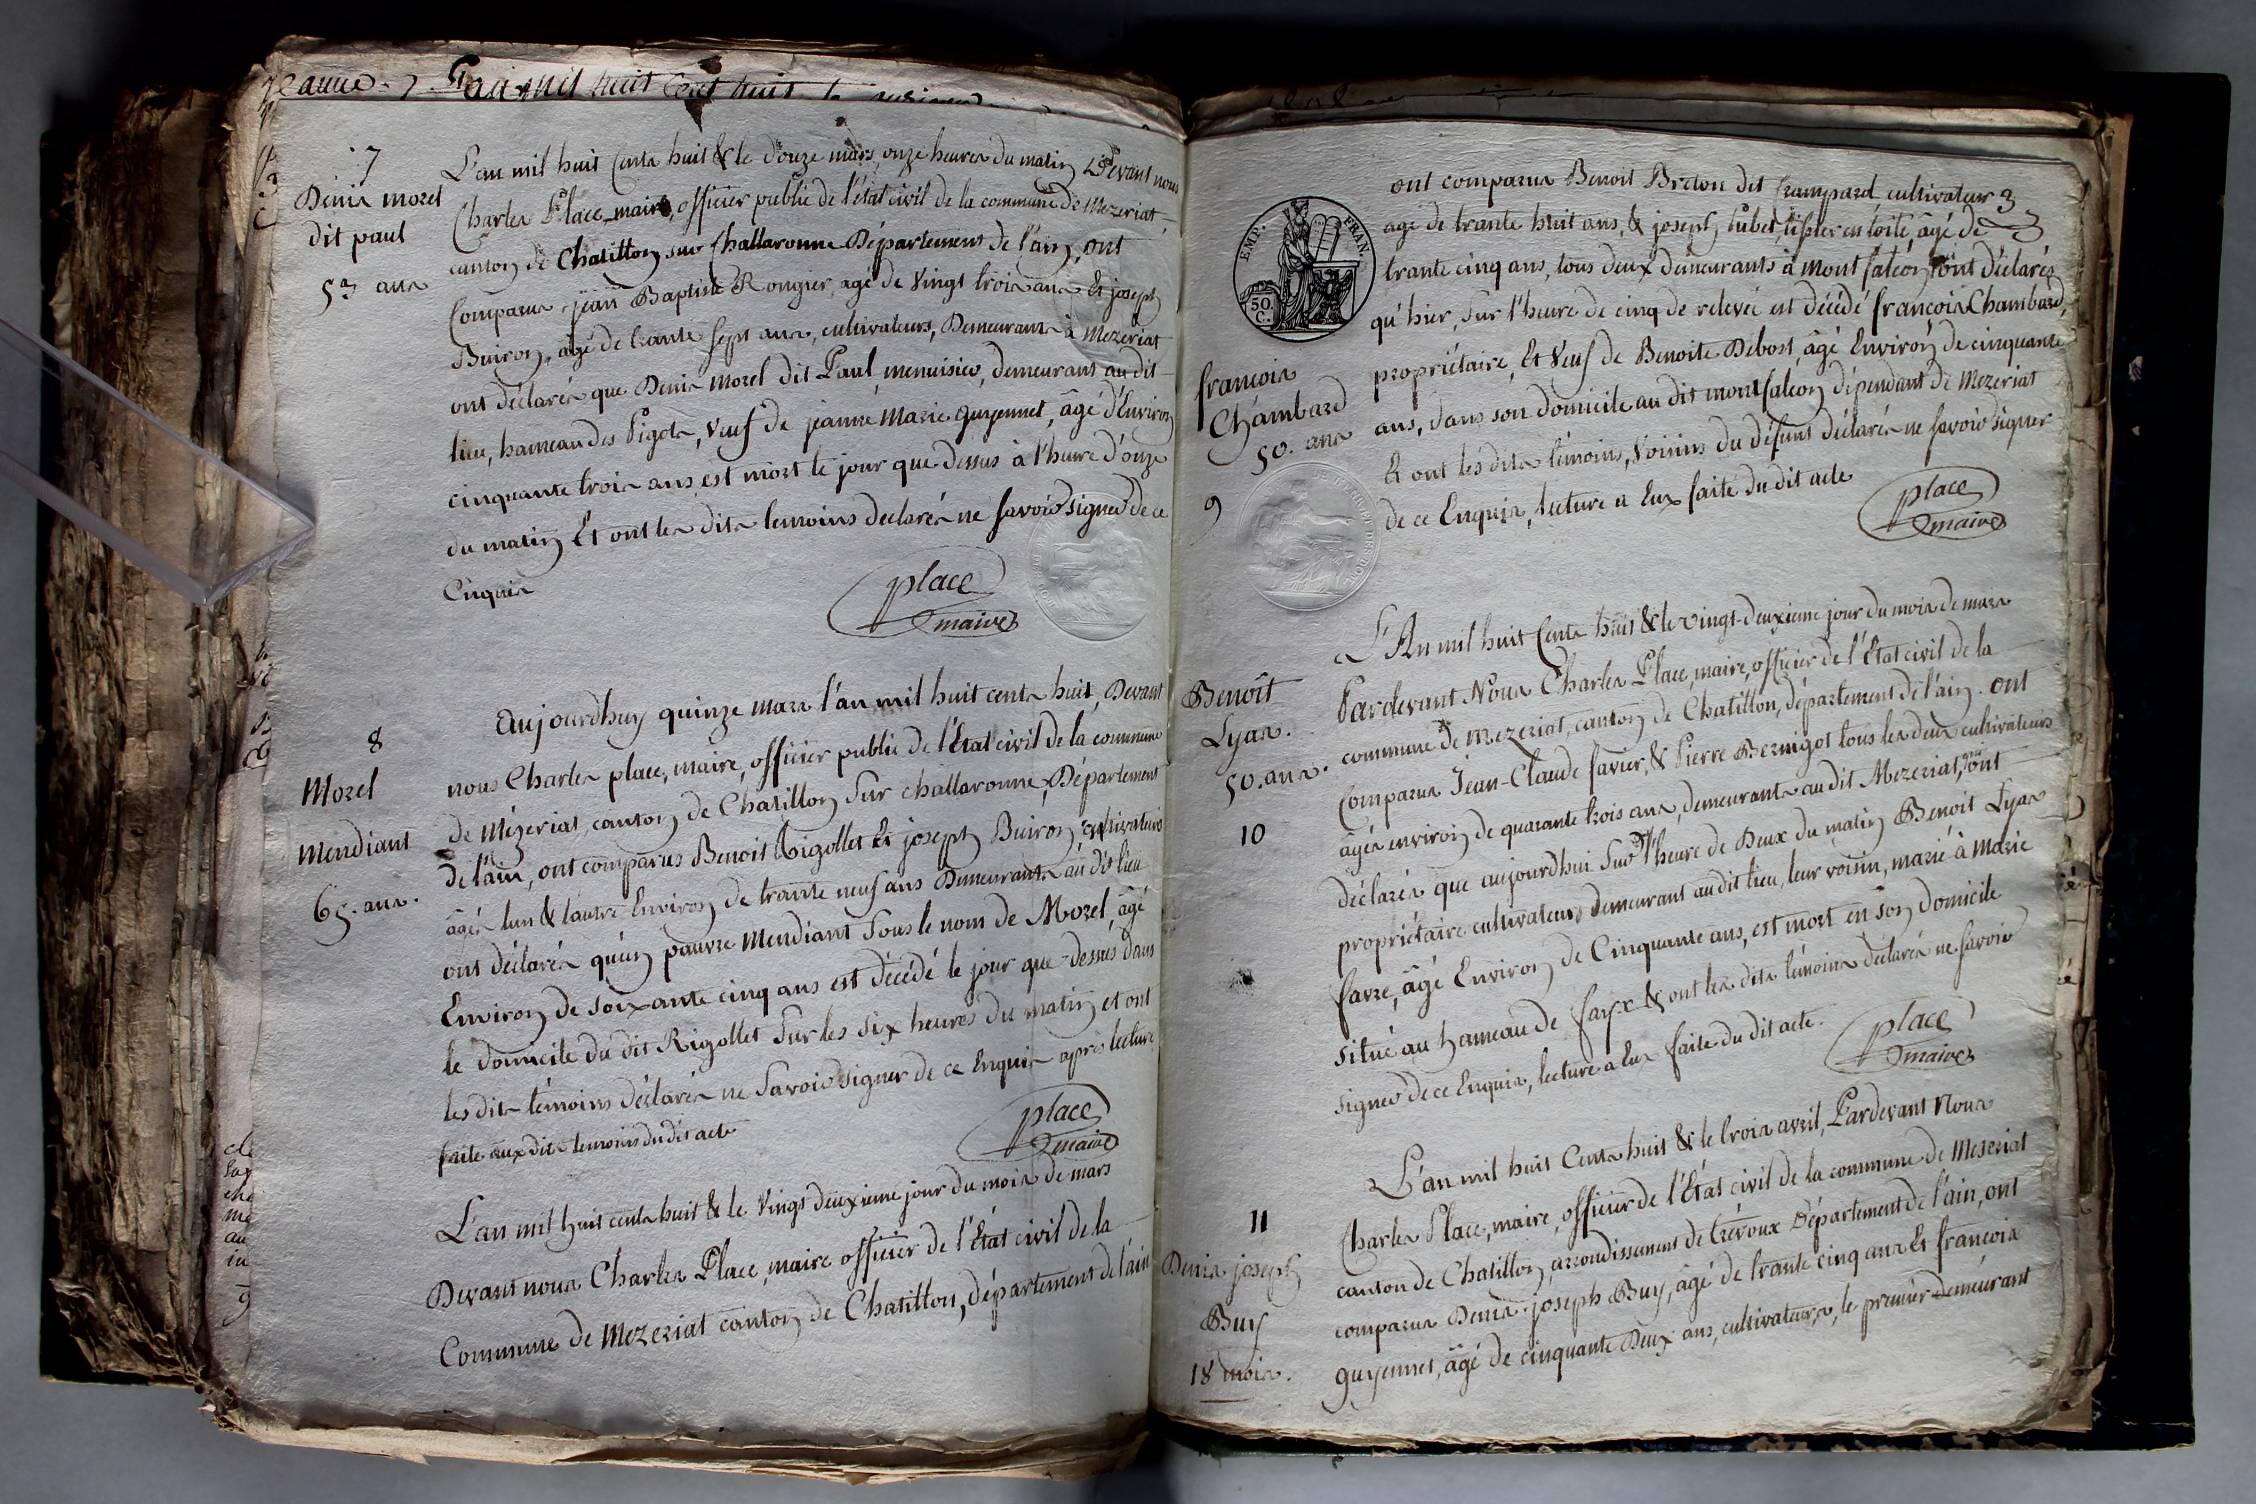 7
Denis morel
dit paul
53 ans
L'an mil huit Cents huit & le douze mars, onze heures du matin Devant nous
Charles Place, maire, officier public de l'état civil de la commune de Mezeriat
canton de Chatillon sur Challaronne Département de l'ain, ont
Comparus jean Baptiste Rongier, agé de Vingt trois ans Et joseph
Buiron, agé de trante sept ans, cultivateurs, Demeurants à Mezeriat
ont déclarés que Denis Morel dit Paul, menuisier, demeurant au dit
lieu, hameau des Pigots, Veuf de jeanne Marie guyennet, âgé d'Environ
cinquante trois ans est mort le jour que dessus à l'heure d'onze
du matin Et ont les dits temoins declarés ne savoir signer de ce
Enquis
place
maire
8
Morel
Mendiant
65. ans.
aujourdhuy quinze mars l'an mil huit cents huit, Devant
nous Charles place, maire, officier public de l'Etat civil de la commune
de Mézeriat, canton de Chatillon sur challaronne, Département
de l'ain, ont comparus Benoit Rigollet Et joseph Buiron cultivateurs
âgés lun & lautre Environ de trante neuf ans Demeurants au dit lieu
ont déclarés qu'un pauvre Mendiant sous le nom de Morel, âgé
Environ de soixante cinq ans est décédé le jour que dessus dans
le domicile du dit Rigollet sur les six heures du matin et ont
les dits témoins déclarés ne savoir signer de ce Enquis après lecture
faite aux dits temoins du dit acte
place
maire
L'an mil huit cents huit & le Vingt deuxieme jour du mois de mars
Devant nous Charles Place, maire officier de l'Etat civil de la
Commune de Mezeriat canton de Chatillon, département de l'ain
EMP. FRAN.
50. C.
françois
Chambard
50. ans
9
ont comparus Benoit Breton dit Crampard cultivateur
agé de trante huit ans, & joseph hubet, tissier en toile, âgé de
trante cinq ans, tous deux demeurants à Montfalcon, ont déclarés
qu'hier, sur l'heure de cinq de relevée est décédé françois Chambard,
propriétaire, Et Veuf de Benoite Debost, âgé Environ de cinquante
ans, dans son domicile au dit montfalcon dépendant de Mezeriat
Et ont les dits témoins, Voisins du défunt déclarés ne savoir signer
de ce Enquis, lecture a Eux faite du dit acte
place
maire
Benoît
Lyas.
50. ans.
10
L'An mil huit Cents huit & le vingt-deuxieme jour du mois de mars
Pardevant Nous Charles Place, maire, officier de l'Etat civil de la
commune de Mezeriat, canton de Chatillon, département de l'ain. ont
Comparus Jean-Claude favier, & Pierre Bernigot tous les deux cultivateurs
âgés environ de quarante trois ans, demeurants au dit Mezeriat, ont
déclarés que aujourdhui sur l'heure de Deux du matin Benoit Lyas
propriétaire cultivateur, demeurant au dit lieu, leur voisin, marié à Marie
favre, âgé Environ de Cinquante ans, est mort en son domicile
situé au hameau de fayx & ont les dits témoins déclarés ne savoir
signer de ce Enquis, lecture a Eux faite du dit acte.
place
maire
11
Denis joseph
Buy
18 mois.
L'an mil huit Cents huit & le trois avril, Pardevant Nous
Charles Place, maire, officier de l'Etat civil de la commune de Mezeriat
canton de Chatillon, arrondissement de trévoux Département de l'ain, ont
comparus Denis-joseph Buy, âgé de trante cinq ans Et françois
guyennet, âgé de cinquante Deux ans, cultivateurs, le premier demeurant